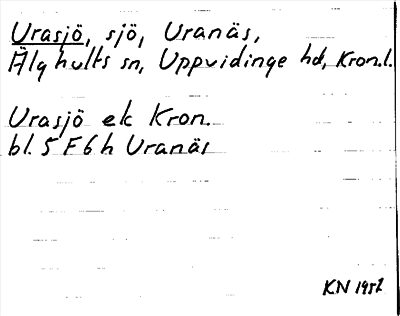 Urasjö, sjö, Uranäs,
Älghults sn, Uppvidinge hd, Kron.l.
Urasjö ek Kron.
bl. 5 F 6 h Uranäs
KN 1951